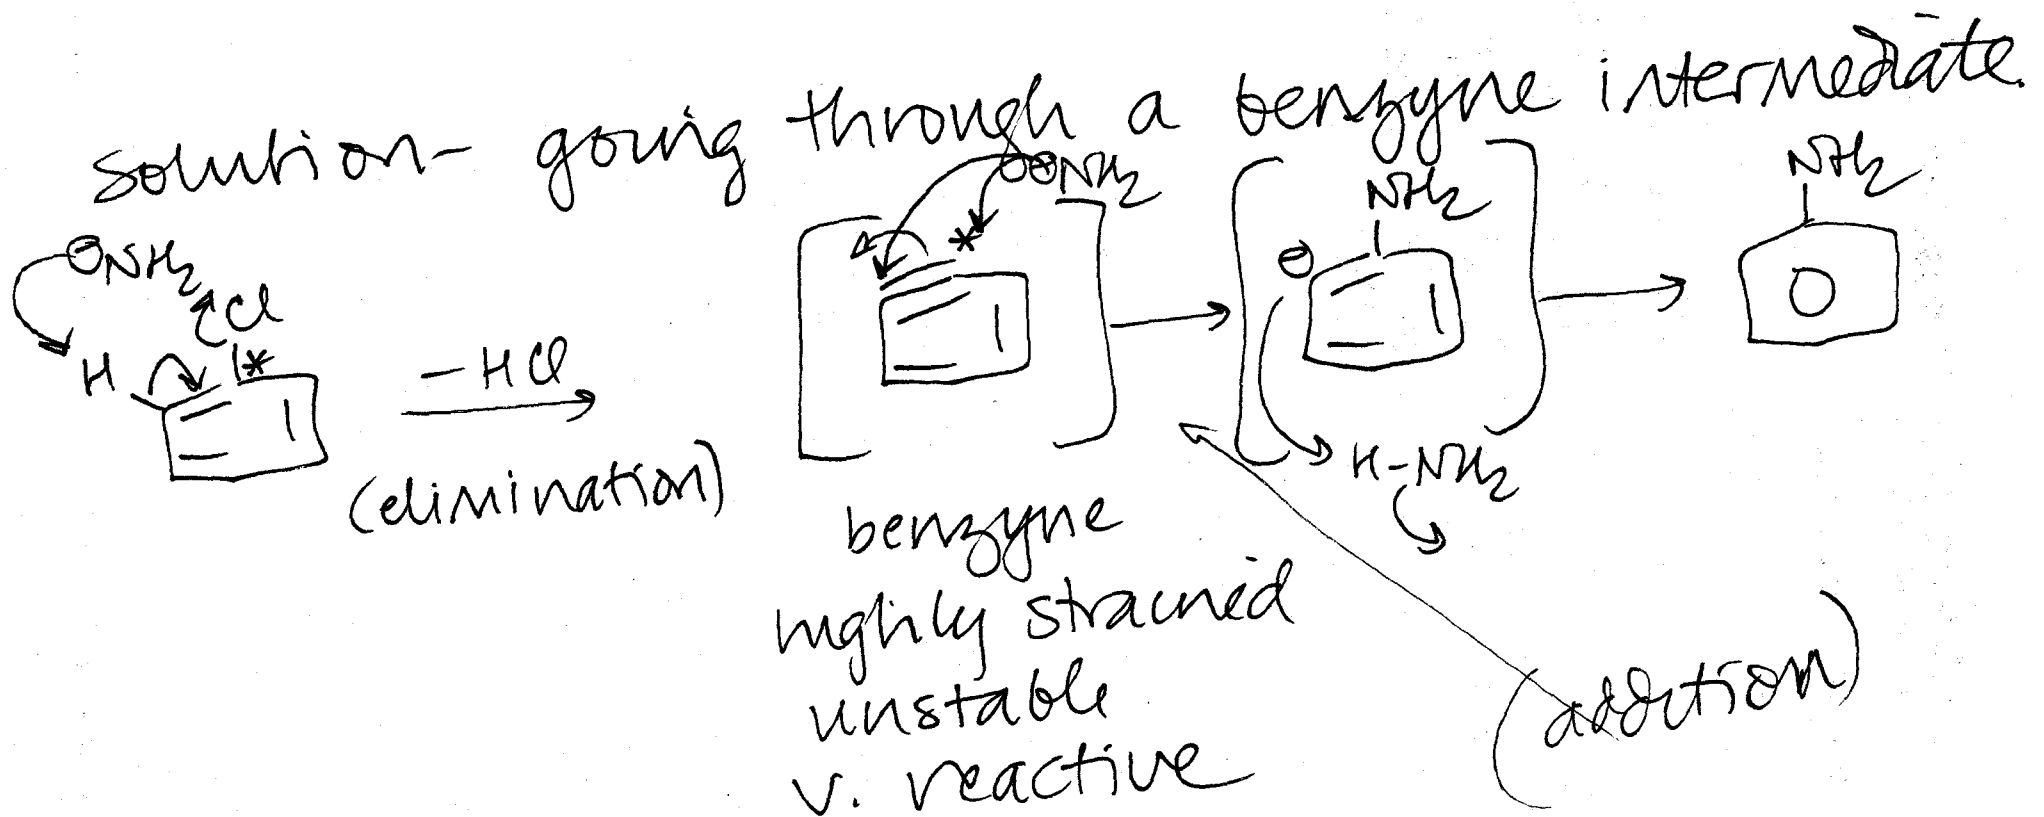 solution- going through a benzyne intermediate.
⊖NH2
Cl
H
*
- HCl
(elimination)
⊖NH2
*
benzyne
highly strained
unstable
v. reactive
NH2
⊖
H-NH2
(addition)
NH2